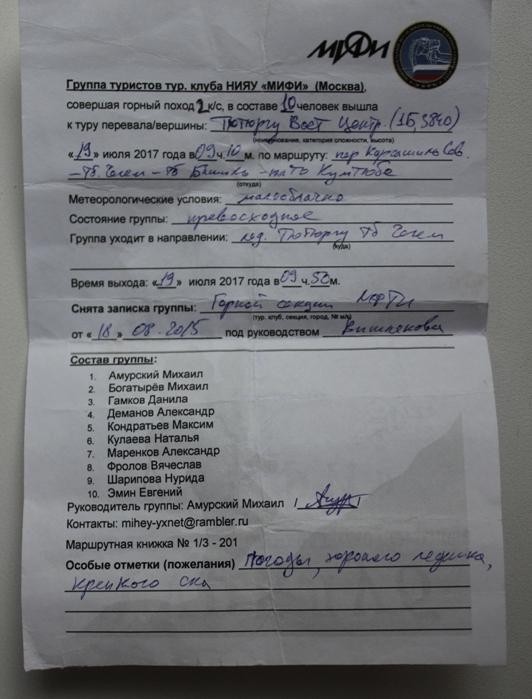 МИФИ
Группа туристов тур. клуба НИЯУ «МИФИ» (Москва),
совершая горный поход 2 к/с, в составе 10 человек вышла
к туру перевала/вершины: Тютюргу Вост Центр. (1Б, 3840)
(наименование, категория сложности, высота)
«19» июля 2017 года в 09 ч. 10 м. по маршруту: пер
(откуда)
Метеорологические условия: малооблачно
Состояние группы: превосходное
Группа уходит в направлении: лед. Тютюргу
(куда)
Время выхода: «19» июля 2017 года в 09 ч. 50 м.
Снята записка группы: Горной секции МФТИ
(тур. клуб, секция, город, № м/к)
от «18» 08.2015 под руководством
Состав группы:
1. Амурский Михаил
2. Богатырёв Михаил
3. Гамков Данила
4. Деманов Александр
5. Кондратьев Максим
6. Кулаева Наталья
7. Маренков Александр
8. Фролов Вячеслав
9. Шарипова Нурида
10. Эмин Евгений
Руководитель группы: Амурский Михаил /
Контакты: mihey-yxnet@rambler.ru
Маршрутная книжка № 1/3 - 201
Особые отметки (пожелания) Погоды, хорошего ледника,
крепкого сна